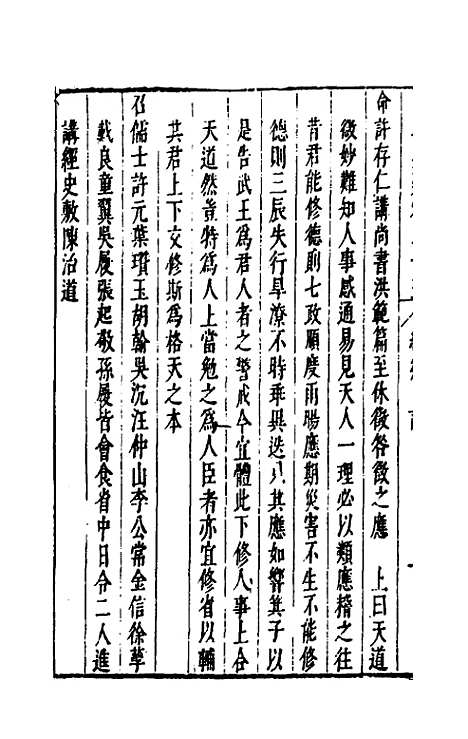 命許存仁講尚書洪範篇至休徵咎徵之應　上曰天道
微妙難知人事感通易見天人一理必以類應稽之往
昔君能修德則七政順度雨暘應期災害不生不能修
德則三辰失行旱潦不時乖異迭見其應如響箕子以
是告武王爲君人者之警戒今宜體此下修人事上合
天道然豈特爲人上當勉之爲人臣者亦宜修省以輔
其君上下交修斯爲格天之本
召儒士許元葉瓚玉胡翰吳沉汪仲山李公常金信徐孳
戴良童冀吳履張起敬孫履皆會食省中日令二人進
講經史敷陳治道